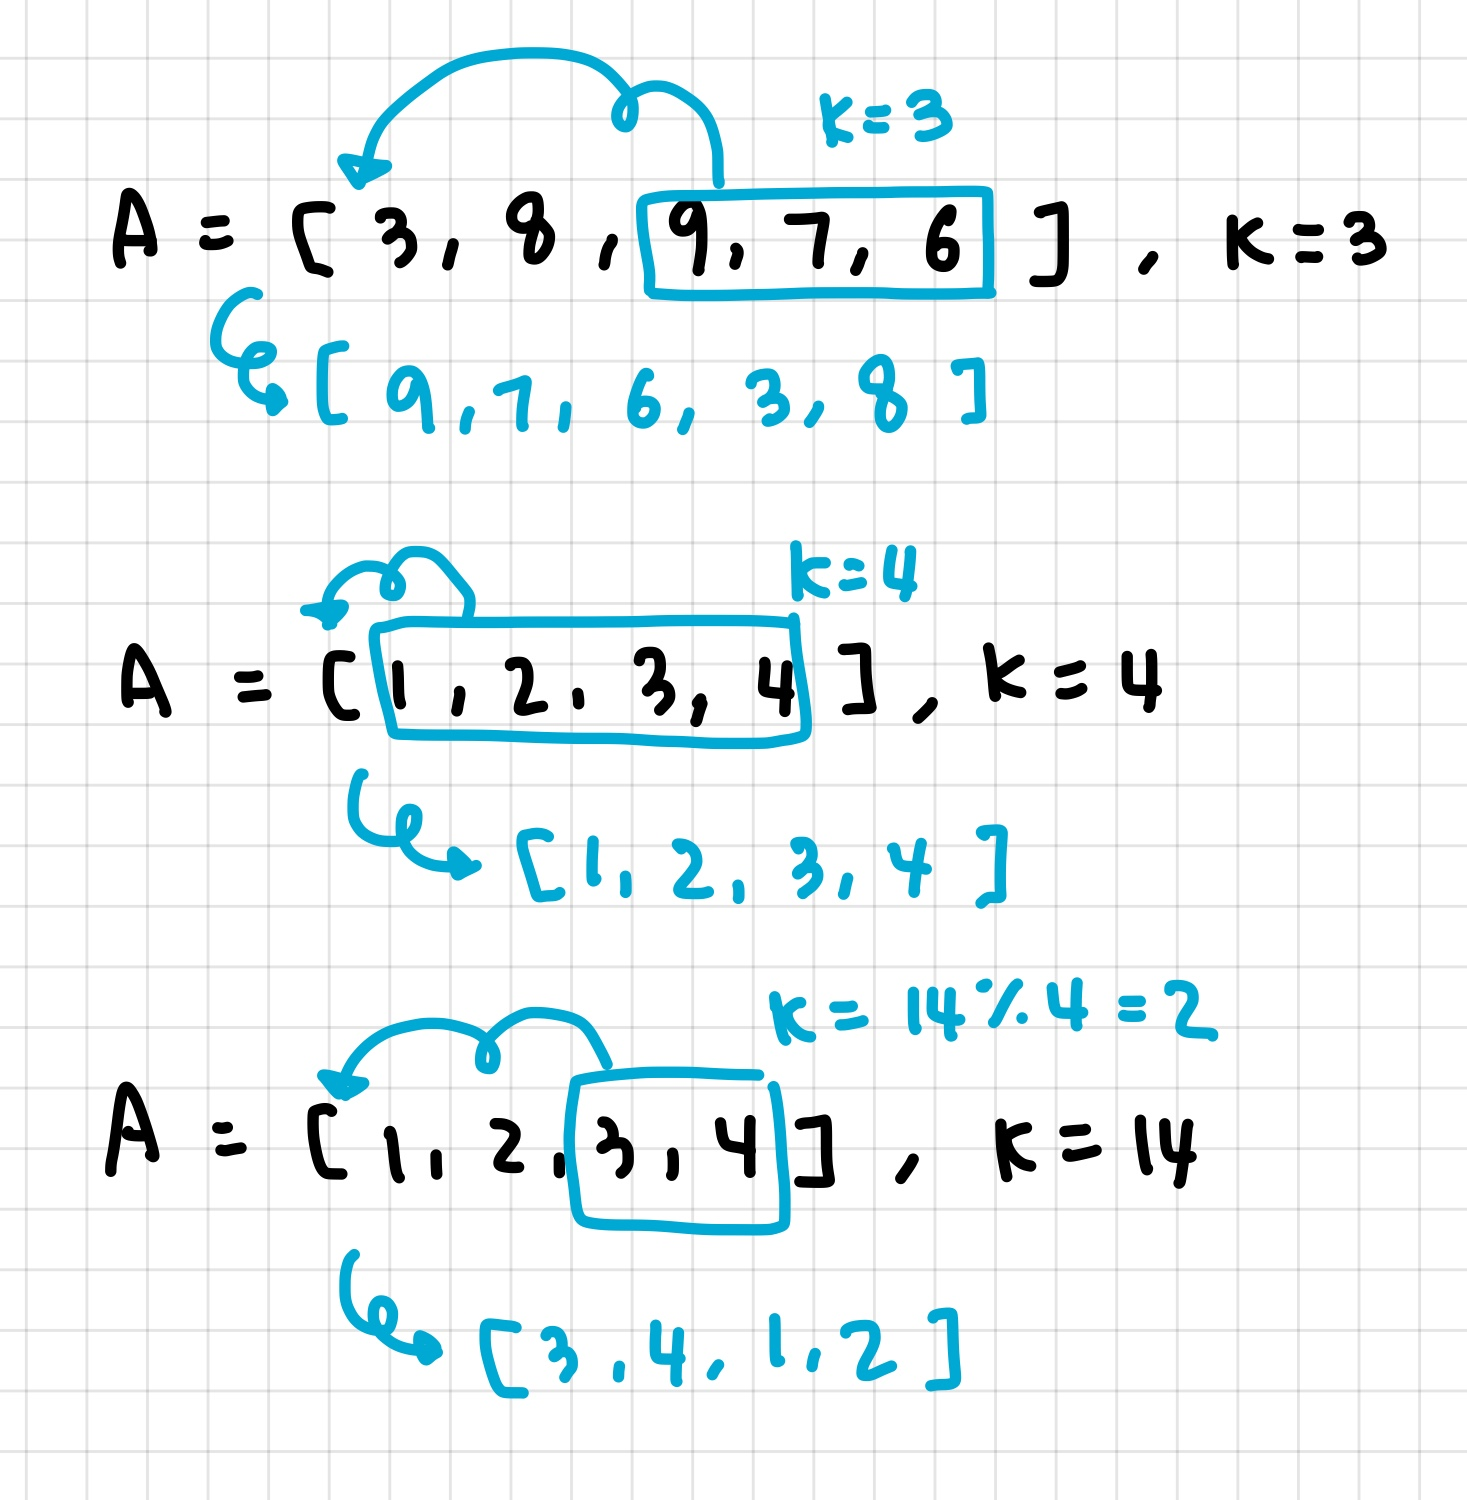 K=3
A = [ 3, 8, 9, 7, 6 ], K=3
[ 9, 7, 6, 3, 8 ]
K=4
A = [ 1, 2, 3, 4 ], K=4
[ 1, 2, 3, 4 ]
K = 14 % 4 = 2
A = [ 1, 2, 3, 4 ], K = 14
[ 3, 4, 1, 2 ]